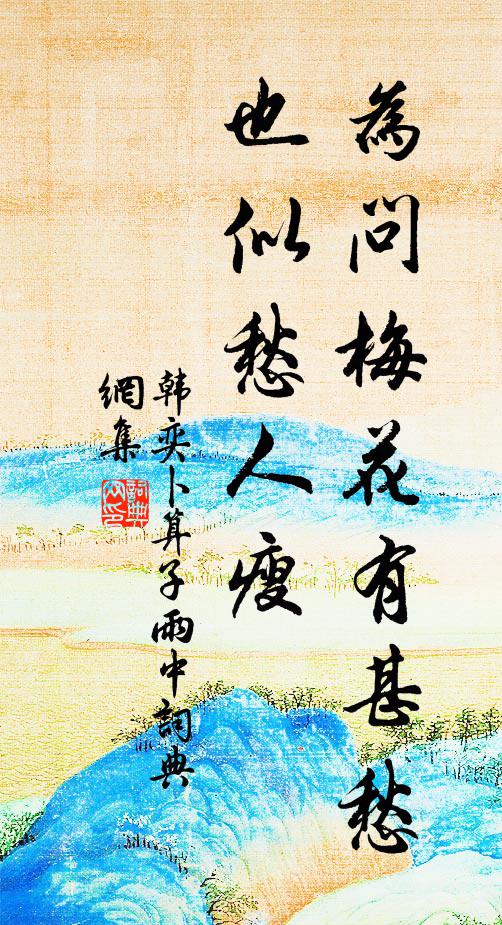 為問梅花有甚愁
也似愁人瘦
韩奕卜算子雨中詞典
網集
詞典